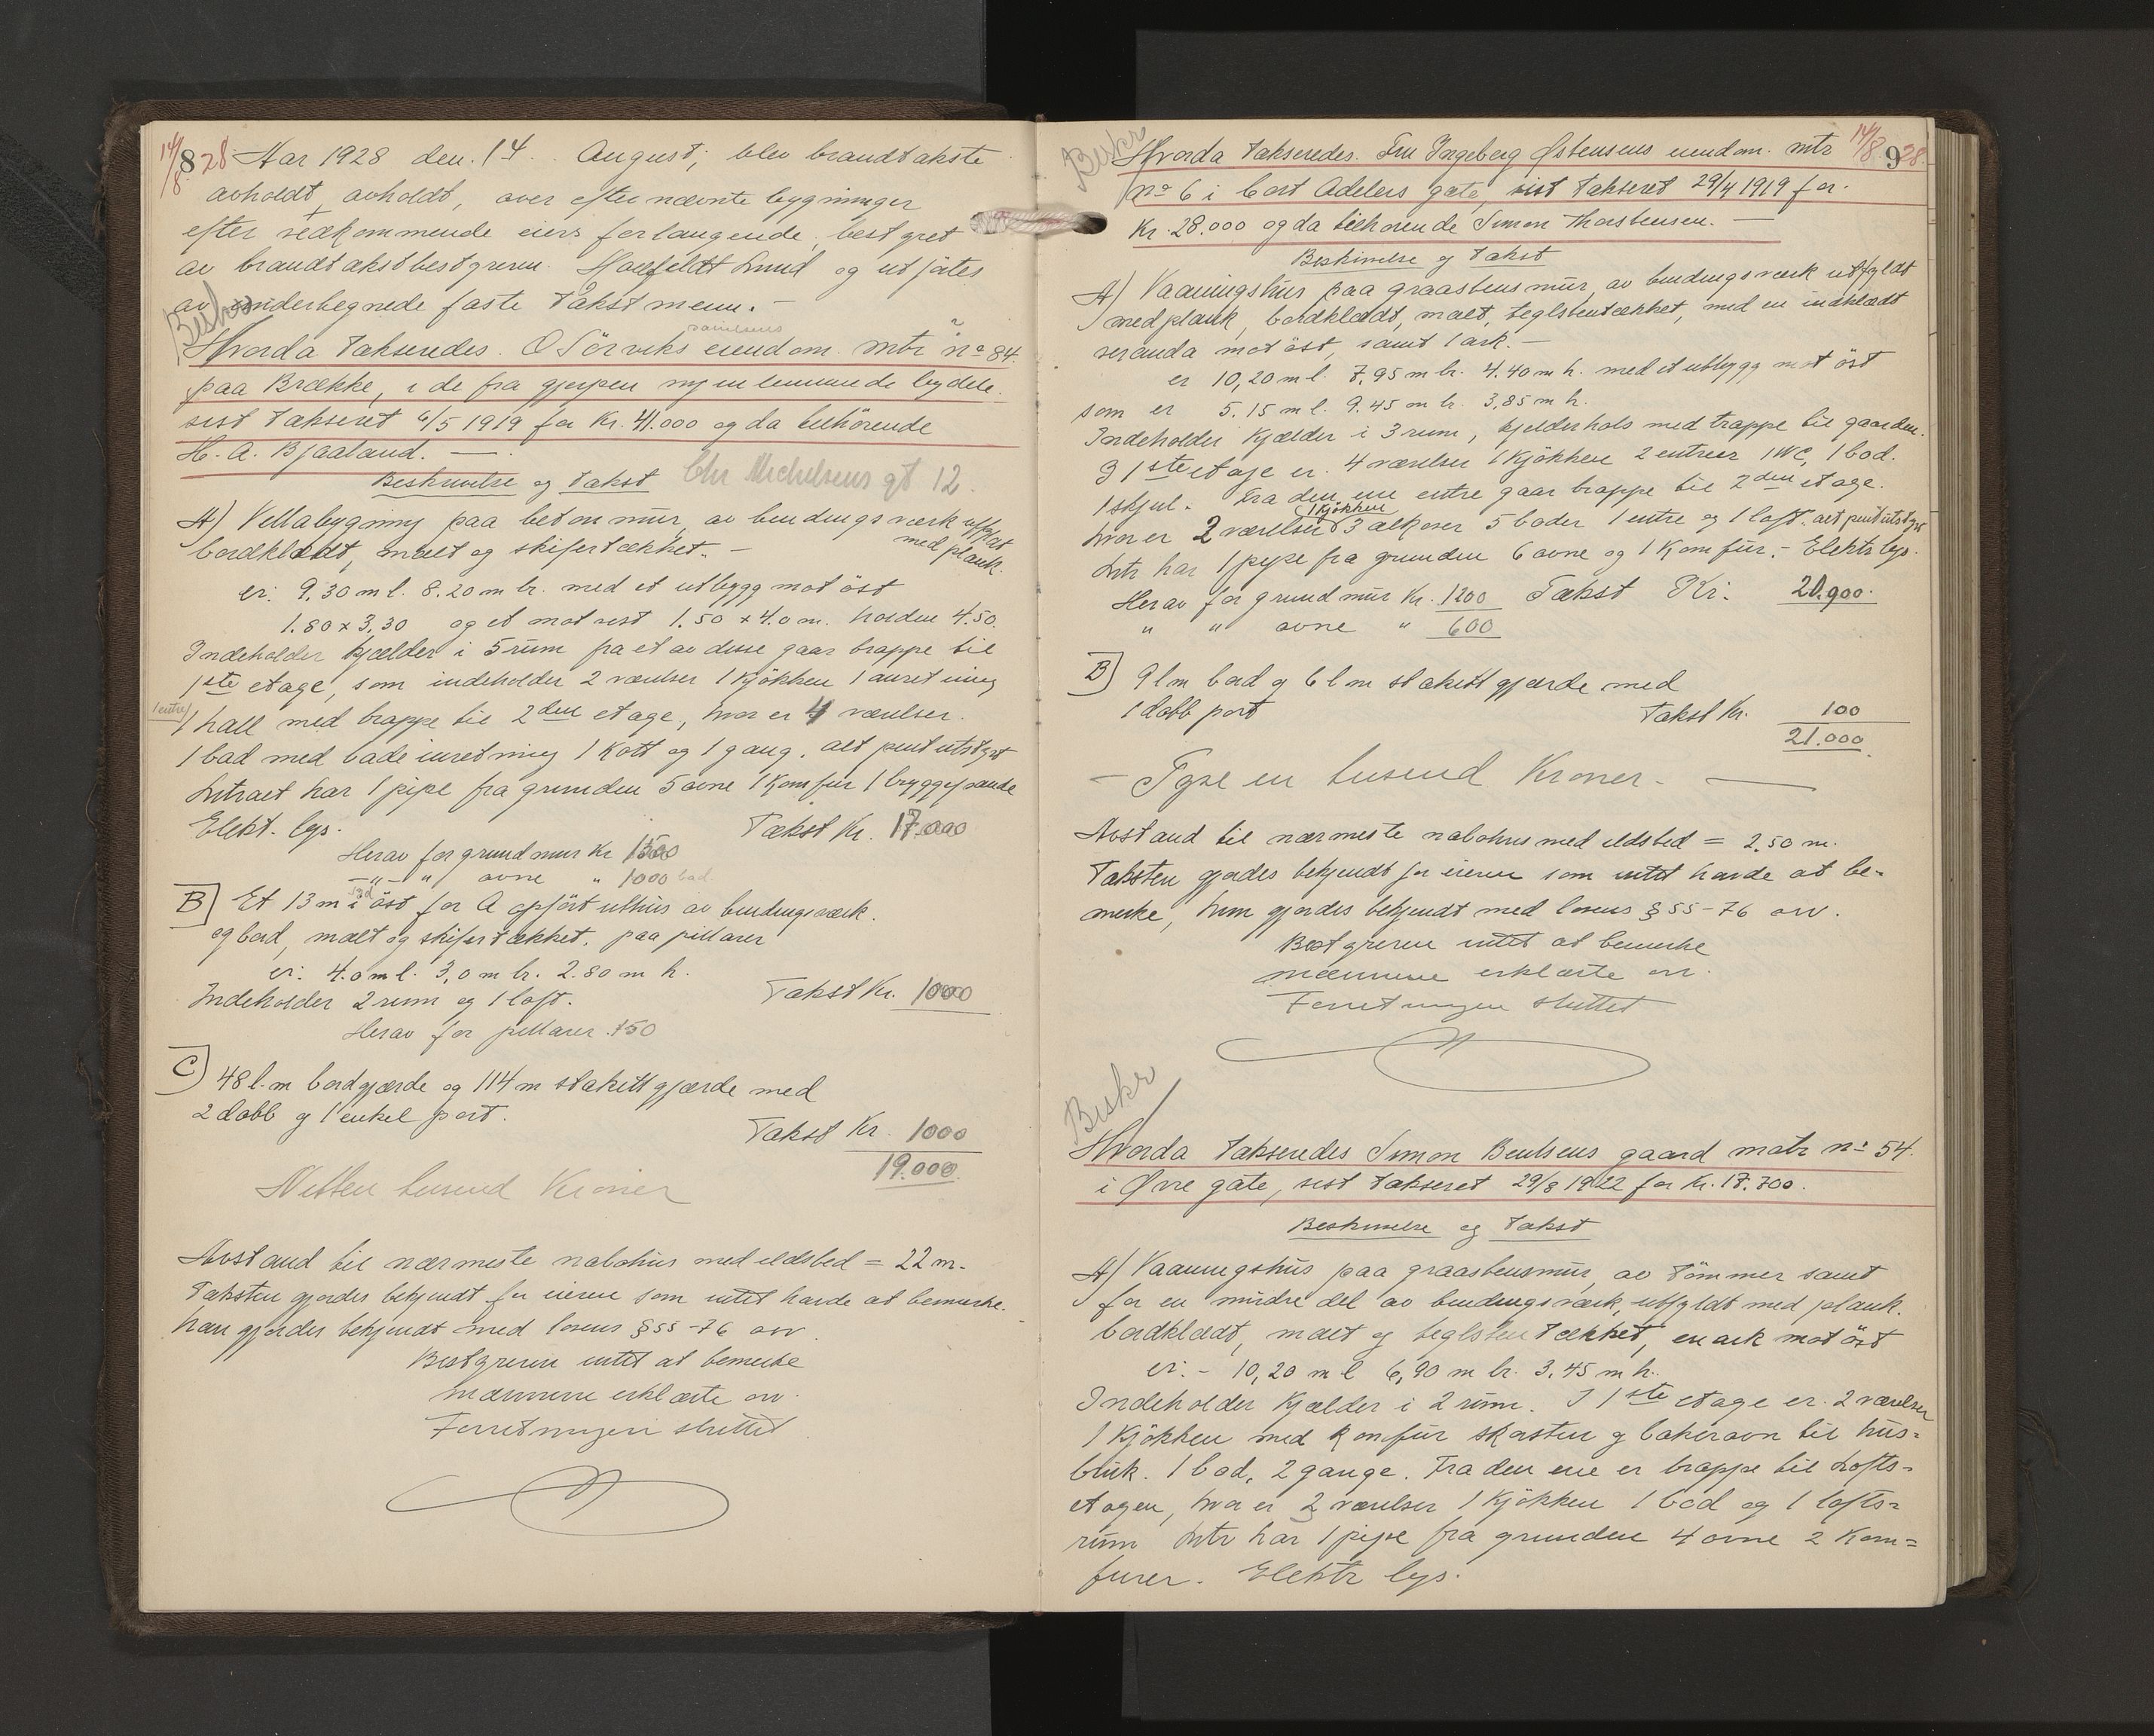 14/8 28
8
Aar 1928 den. 14. August, blev brandtakste
avholdt, avholdt, over efternævnte bygninger
efter vedkommende eiers forlangende, bestyret
av brandtakstbestyreren Lund og utføtes
av underbegnede faste Takstmenn. —
Beskr
Hvorda Takseredes. O Sörviks eiendom. mtr nº 84.
paa Brække, i de fra gjerpen nyinlemmede bydele.
sist Takseret 6/5 1919 for Kr. 41.000 og da tilhörende
H. A. Bjaaland. —
Beskrivelse og Takst Chr Michelsens gt 12.
A) Vellabygning paa betonmur, av bendingsværk utfyldt
med plank.
bordklædt, malt og skifertækket. —
er: 9.30 m l. 8.20 m br. med et utbygg mot öst
1.80 x 3.30 og et mot vest 1.50 x 4.0 m. höiden 4.50.
Indeholder kjælder i 5 rum fra et av disse gaar trappe til
1ste etage, som indeholder 2 værelser 1 kjökken 1 anretning
1 entre
1 hall med trappe til 2den etage, hvor er 4 værelser.
1 bad med badeinretning 1 Kott og 1 gang. alt pent utstyrt
Intraet har 1 pipe fra grunden 5 ovne 1 Komfur 1 bryggepande
Elekt. lys. Takst Kr. 17.000
Herav for grundmur Kr 1500
—"— " ovne " 1000 bad.
B) Et 13 m i öst for A opfört uthus av bendingsværk.
syd
og bord, malt og skifertækket, paa pillarer
er: 4.0 m l. 3,0 m br. 2.80 m h.
Indeholder 2 rum og 1 loft. Takst Kr. 1000
Herav for pillarer 150
C) 48 l.m bordgjærde og 114 m stakittgjærde med
2 dobb og 1 enkel port.
Takst Kr. 1000
19.000
Nitten tusend Kroner
Avstand til nærmeste nabohus med ildsted = 22 m.
Taksten gjordes bekjendt for eieren som intet havde at bemerke.
han gjordes bekjendt med lovens § 55-76 osv.
Bestyreren intet at bemerke
mænnene erklærte osv.
Forretningen sluttet
14/8 28.
9
Beskr
Hvorda Takseredes. Fru Ingeborg Østensens eiendom. mtr
nº 6 i Cort Adelers gate, sist Takseret 29/4 1919 for.
Kr. 28.000 og da tilhörende Simon Thorstensen. —
Beskrivelse og Takst
A) Vaaningshus paa graastensmur, av bendingsværk utfyldt
med plank, bordklædt, malt, teglstentækket, med en indklædt
veranda mot öst, samt 1 ark. —
er 10,20 m l. 7,95 m br. 4.40 m h. med et utbygg mot öst
som er 5.15 m l. 9.45 m br. 3,85 m h.
Indeholder Kjælder i 3 rum, kjelderhals med trappe til gaarden.
I 1ste etage er. 4 værelser 1 Kjökken 2 entreer 1 WC, 1 bod.
1 skjul. Fra den ene entre gaar trappe til 2den etage.
1 Kjökken
hvor er 2 værelser 3 alkover 5 boder 1 entre og 1 loft. alt pent utstyrt
Intr har 1 pipe fra grunden 6 ovne og 1 Komfur. — Elektr lys.
Herav for grundmur Kr. 1200 Takst Kr. 20.900.
" " ovne " 600
B) 9 l m bord og 6 l m stakittgjærde med
1 dobb port Takst Kr. 100
21.000
— Tyve en tusend Kroner. —
Avstand til nærmeste nabohus med ildsted = 2,50 m.
Taksten gjordes bekjendt for eieren som intet havde at be-
merke, hun gjordes bekjendt med lovens § 55-76 osv.
Bestyreren intet at bemerke
mænnene erklærte osv.
Forretningen sluttet
Beskr
Hvorda Takseredes Simon Bentsens gaard matr nº 54.
i Øvre gate, sist Takseret 29/8 1922 for Kr. 17.700.
Beskrivelse og Takst
A) Vaaningshus paa graastensmur, av Tömmer samt
for en mindre del av bendingsværk, utfyldt med plank.
bordklædt, malt og teglstentækket, en ark mot öst
er: — 10,20 m l 6,90 m br. 3.45 m h.
Indeholder Kjælder i 2 rum. I 1ste etage er. 2 værelser
1 Kjökken med Komfur skorsten og bakerovn til hus=
bruk. 1 bod, 2 gange. Fra den ene er trappe til Lofts=
etagen, hvor er 2 værelser 1 Kjökken 1 bod og 1 lofts=
rum Intr har 1 pipe fra grunden 4 ovne 2 Kom=
furer. Elektr lys.